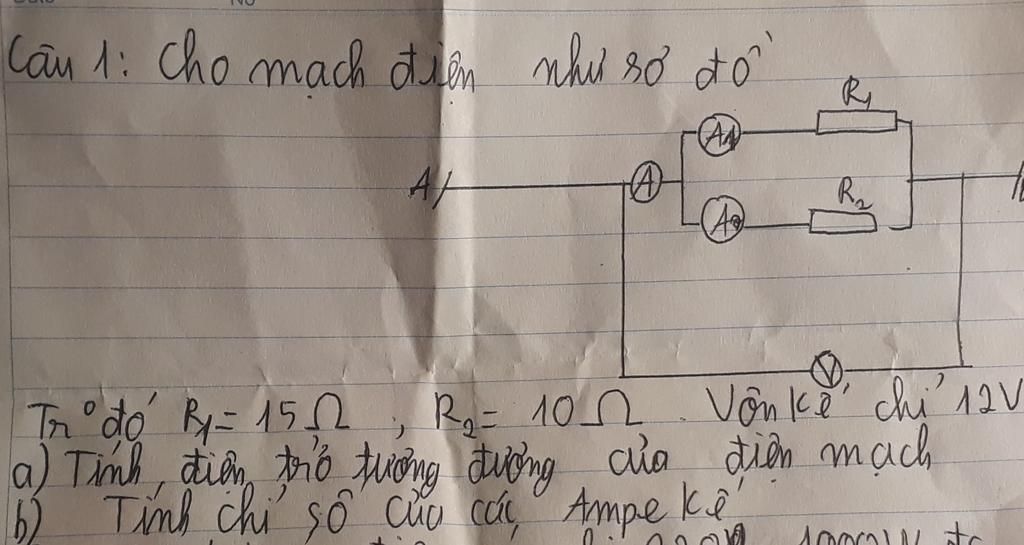 Câu 1: Cho mạch điện như sơ đồ
R1
A1
A
A
R2
A2
V
Tr° đó R1 = 15Ω ; R2 = 10Ω. Vôn kế chỉ 12V
a) Tính điện trở tương đương của điện mạch
b) Tính chỉ số của các Ampe kế